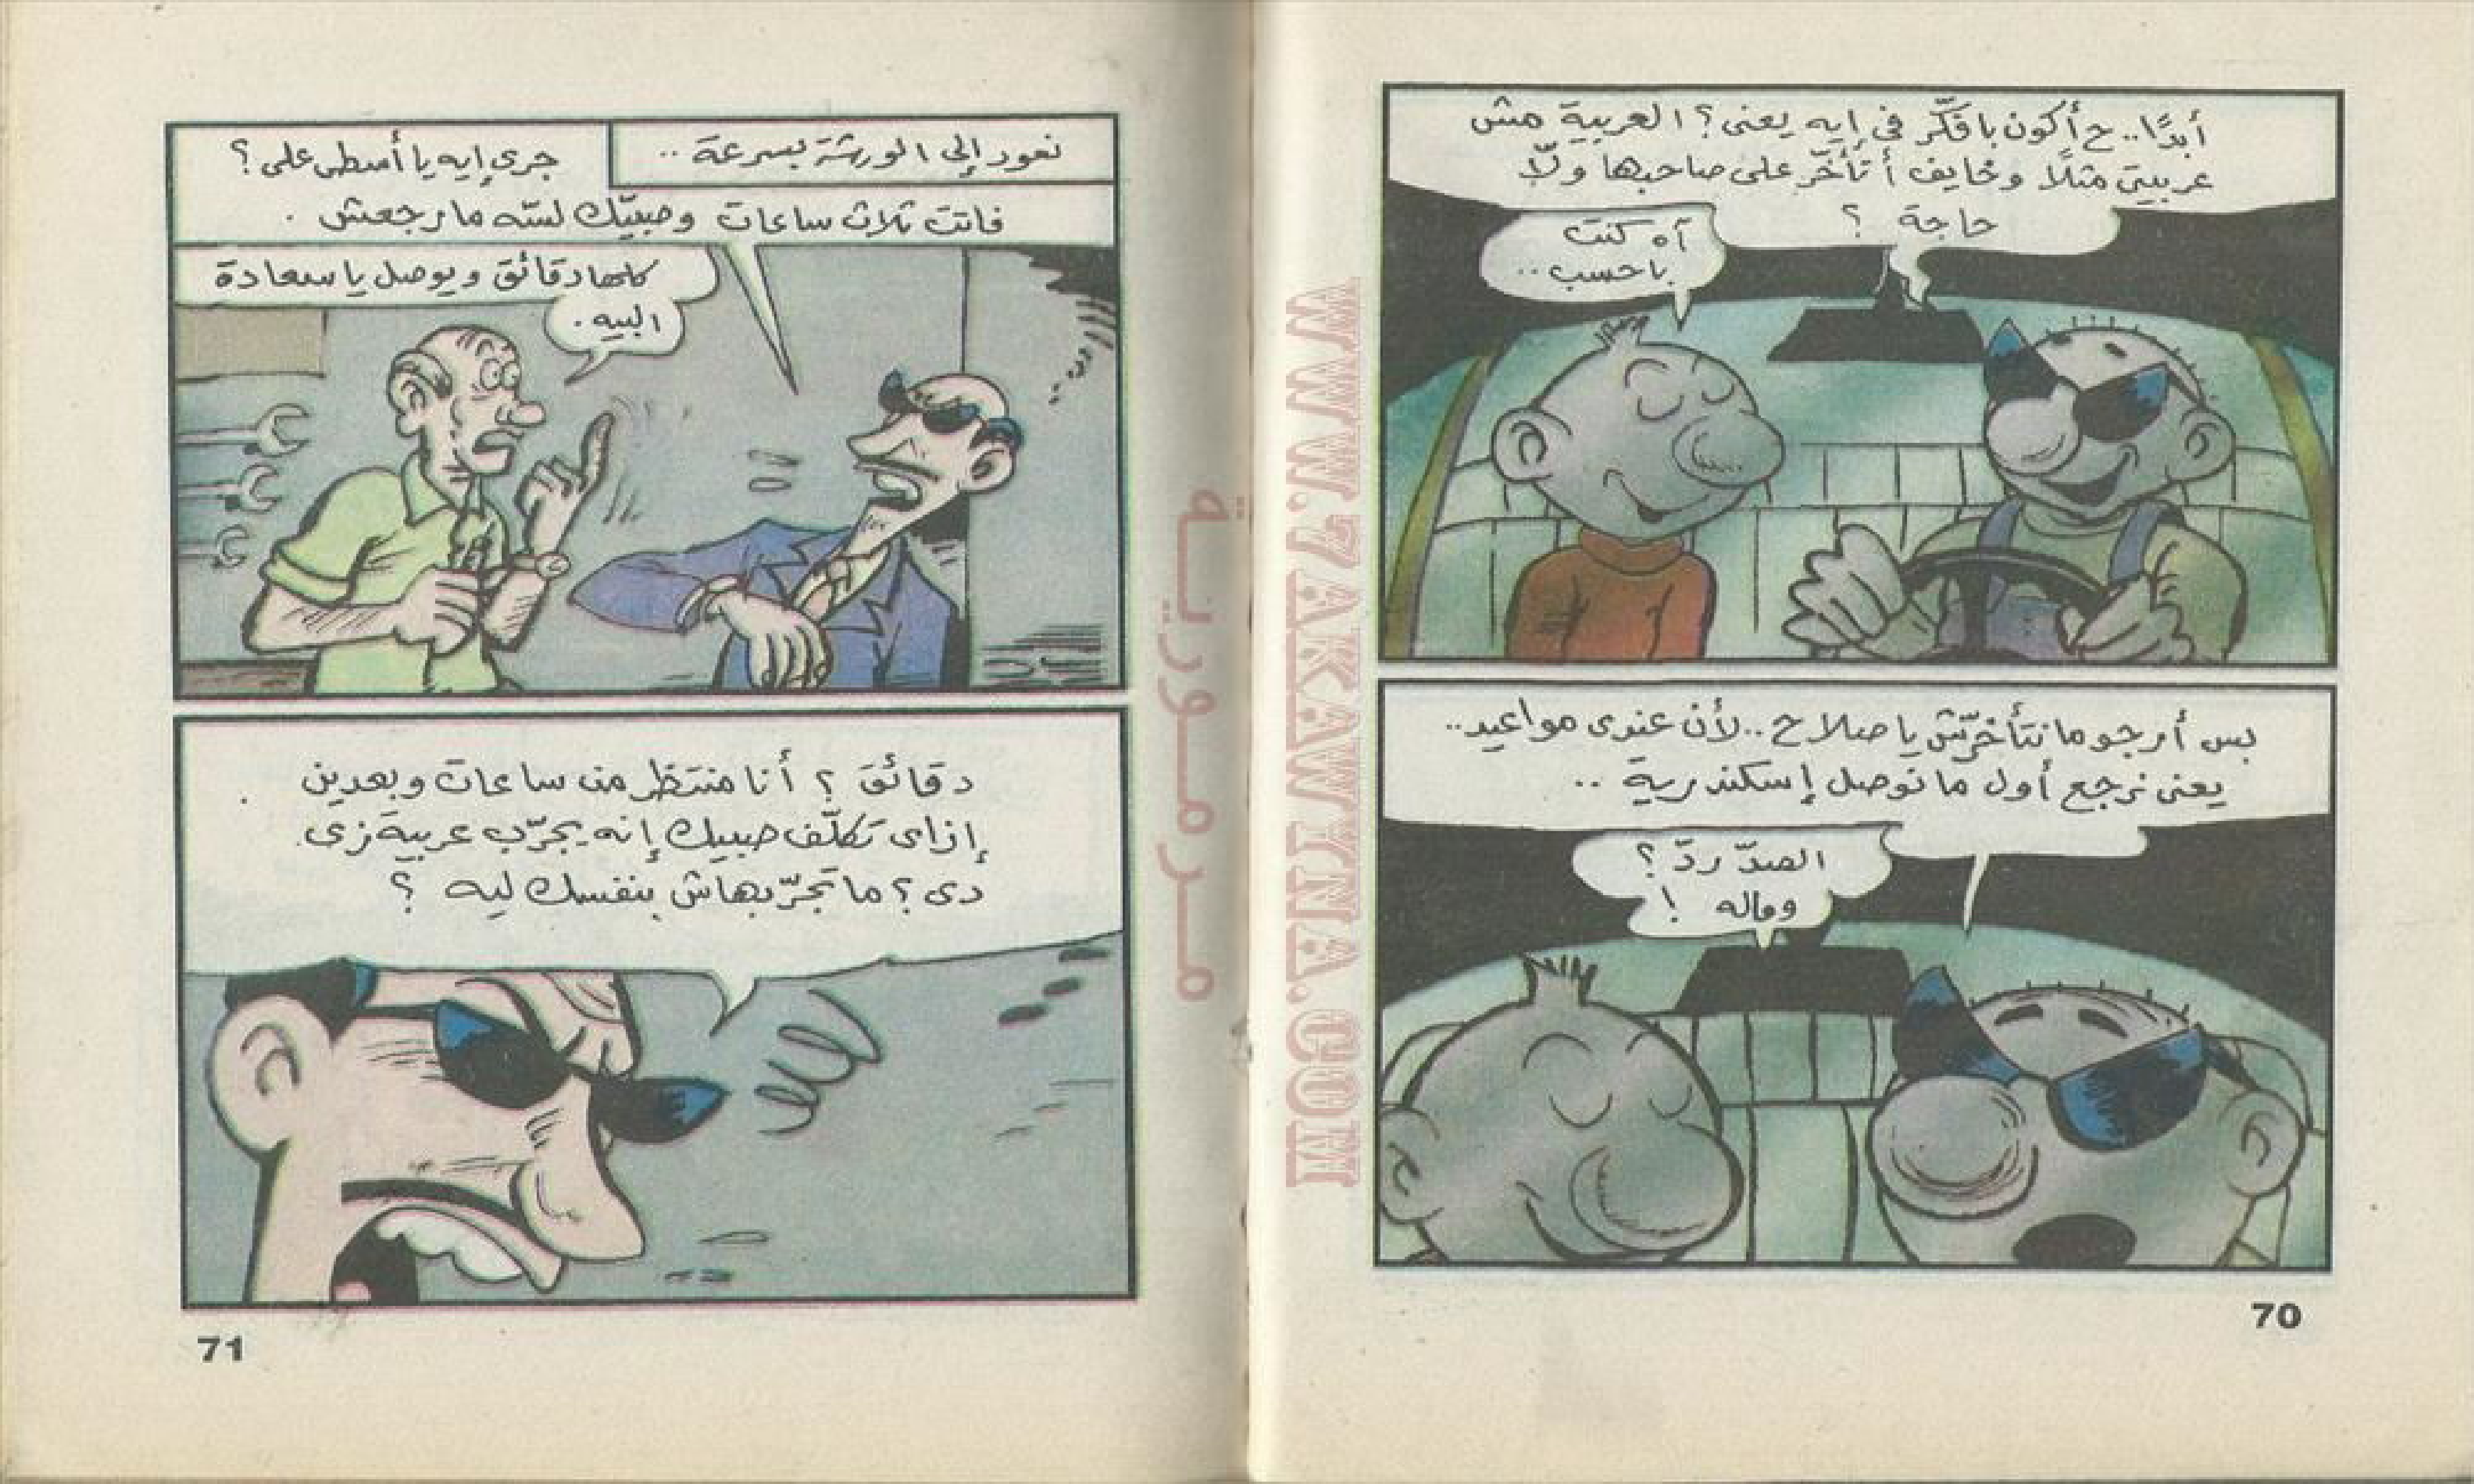 أبدًا.. ح أكون بافكّر فى إيه يعنى؟ العربية مش
عربيتى مثلًا وخايف أتأخّر على صاحبها ولّا
حاجة ؟
آه كنت
باحسب ..
بس أرجو ما نتأخرّش يا صلاح .. لأن عندى مواعيد ..
يعنى نرجع أول ما نوصل إسكندرية ..
الصدّ ردّ ؟
وماله !
70
نعود إلى الورشة بسرعة ..
جرى إيه يا أسطى على ؟
فاتت ثلاث ساعات وصبيّك لسّه ما رجعش .
كلها دقائق ويوصل يا سعادة
البيه .
دقائق ؟ أنا منتظر من ساعات وبعدين
إزاى تكلّف صبيك إنه يجرّب عربية زى
دى ؟ ما تجرّبهاش بنفسك ليه ؟
71
مرمورية